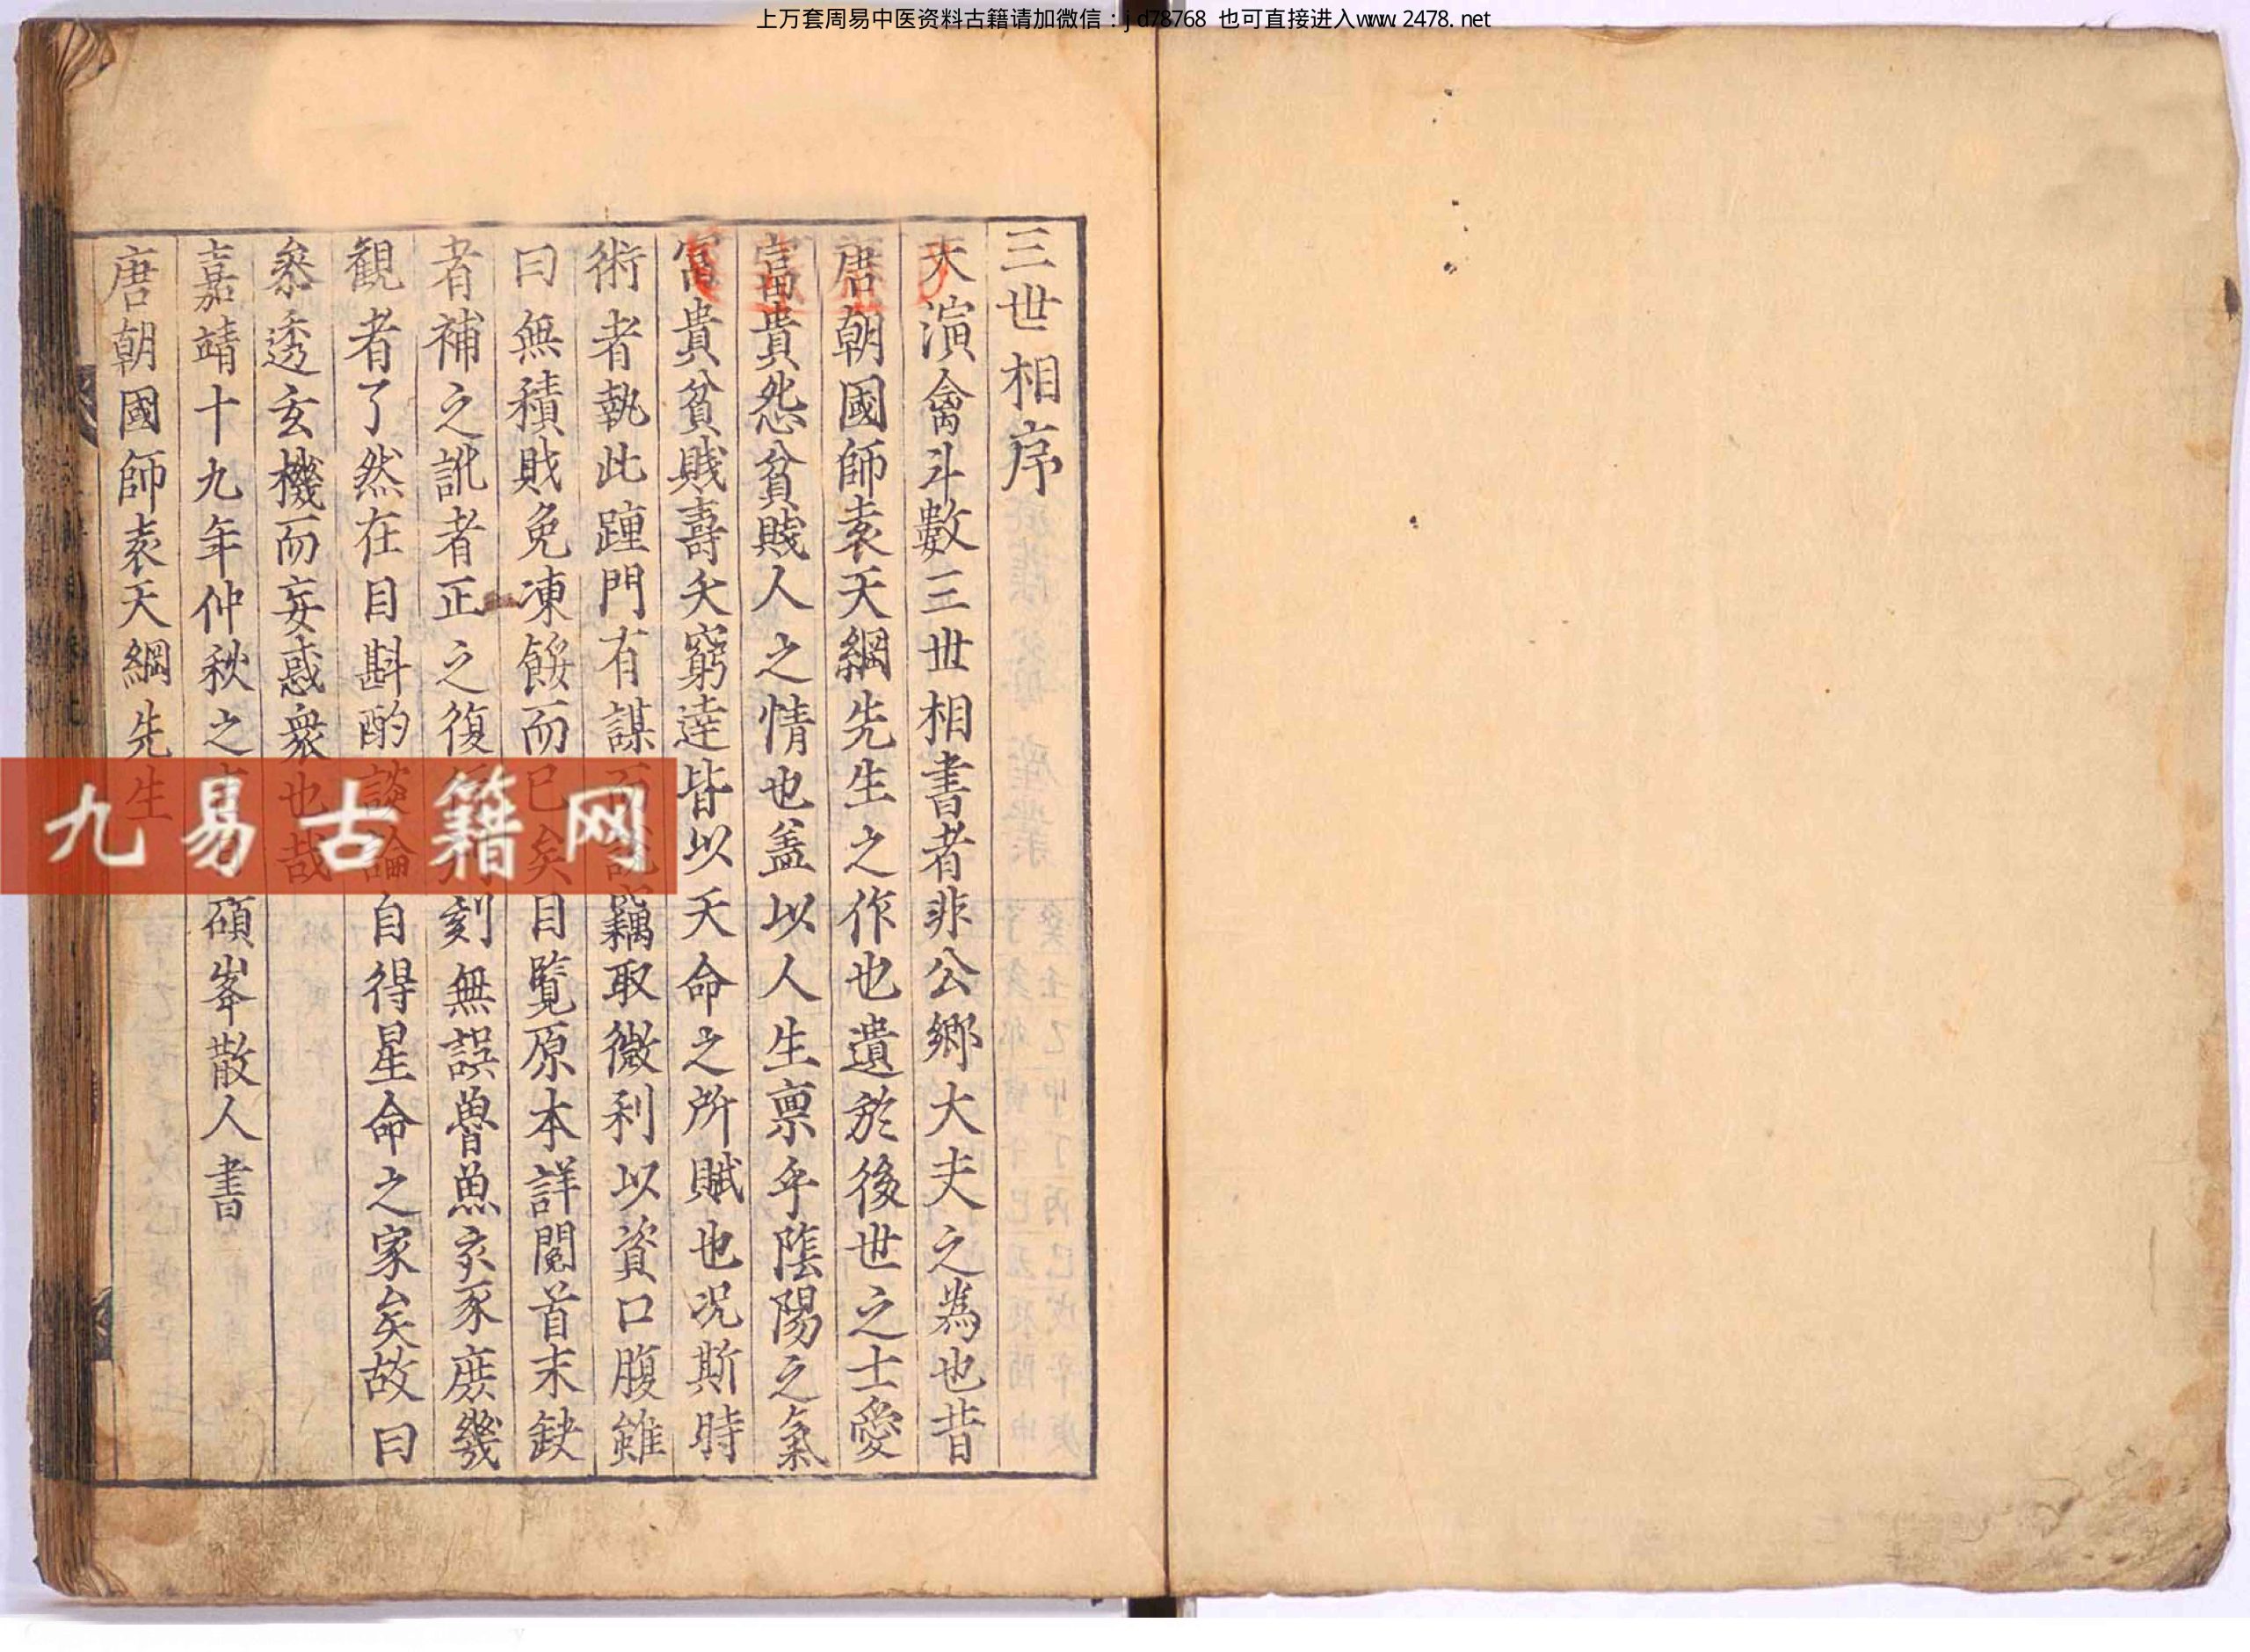 上万套周易中医资料古籍请加微信：jd78768 也可直接进入www.2478.net
三世相序
天演禽斗數三世相書者非公鄉大夫之為也昔
唐朝國師袁天綱先生之作也遺於後世之士愛
富貴怨貧賤人之情也盖以人生禀乎隂陽之氣
富貴貧賤壽夭窮達皆以天命之所賦也况斯時
術者執此踵門有謀而說竊取微利以資口腹雖
曰無積財免凍餒而已矣目覧原本詳閱首末缺
者補之訛者正之復刻無誤魯魚亥豕庶幾
観者了然在目斟酌談論自得星命之家矣故曰
叅透玄機而妄惑衆也哉
嘉靖十九年仲秋之碩峯散人書
唐朝國師袁天綱先生
九易古籍网